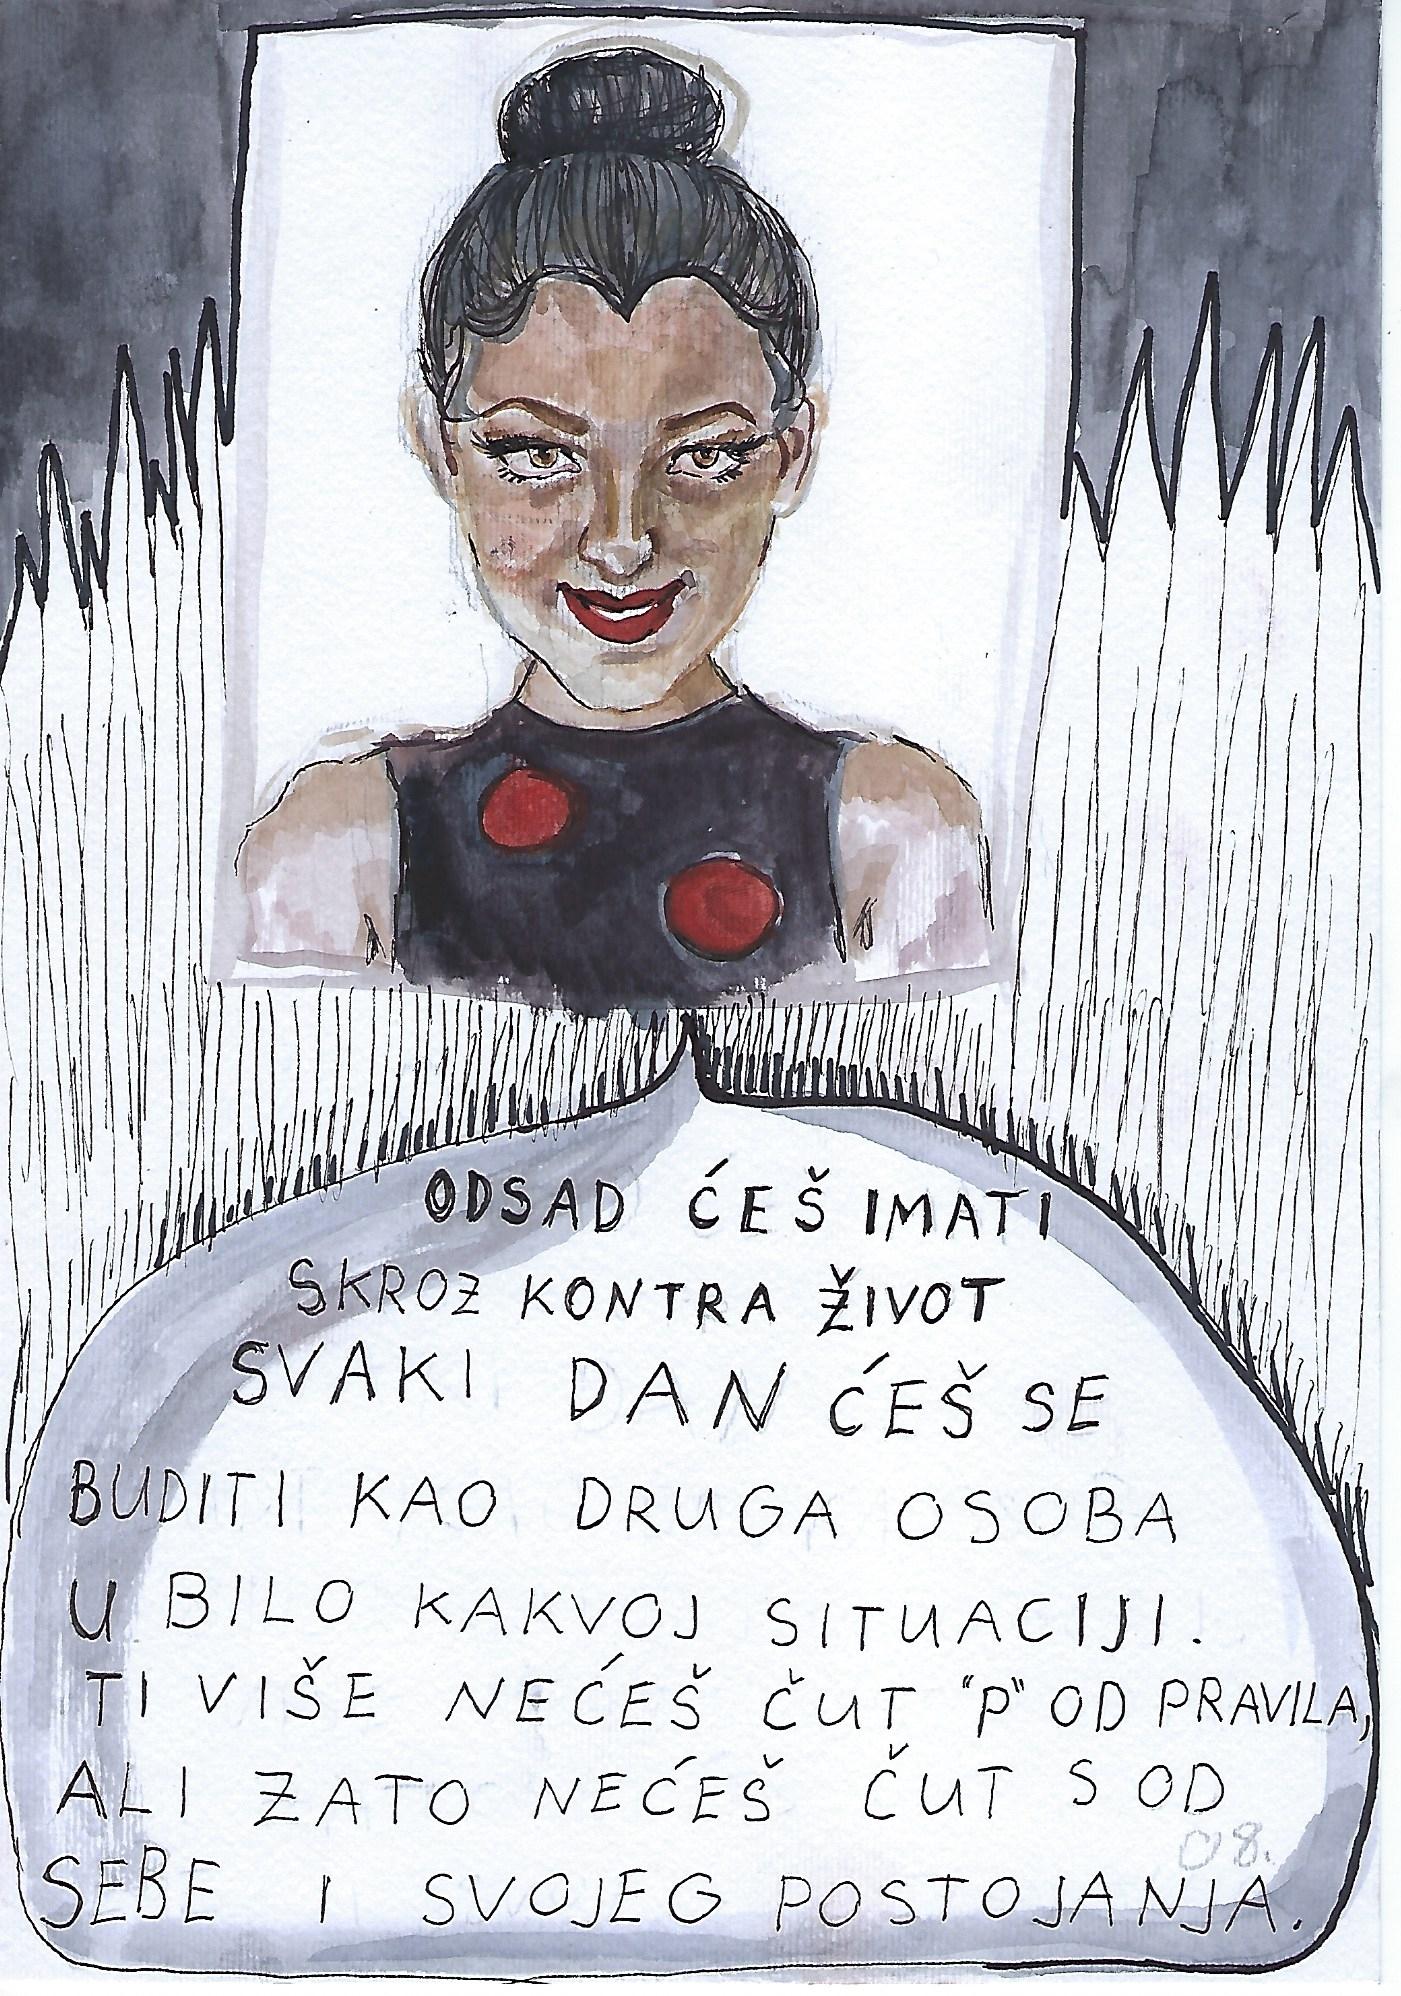 ODSAD ĆEŠ IMATI
SKROZ KONTRA ŽIVOT
SVAKI DAN ĆEŠ SE
BUDITI KAO DRUGA OSOBA
U BILO KAKVOJ SITUACIJI.
TI VIŠE NEĆEŠ ČUT "P" OD PRAVILA,
ALI ZATO NEĆEŠ ČUT S OD
08.
SEBE I SVOJEG POSTOJANJA.